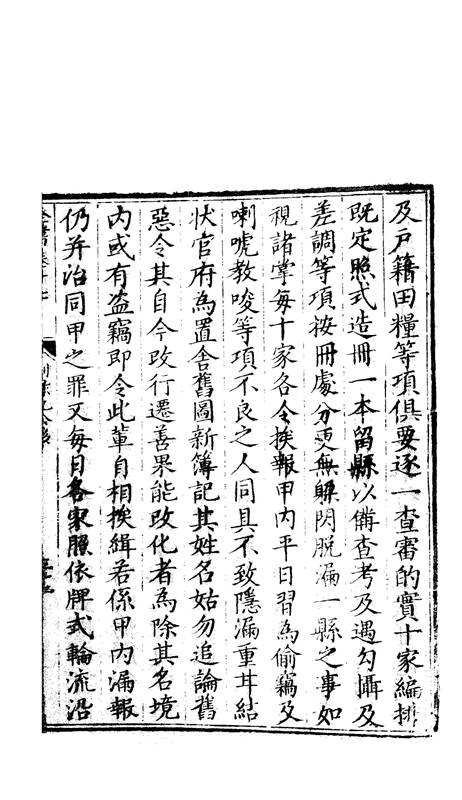 及戶籍田糧等項俱要逐一查審的實十家編排
既定照式造冊一本留縣以備查考及遇勾攝及
差調等項按冊處分更無躲閃脫漏一縣之事如
視諸掌每十家各令挨報甲內平日習為偷竊及
喇唬教唆等項不良之人同具不致隱漏重甘結
狀官府為置舍舊圖新簿記其姓名姑勿追論舊
惡令其自今改行遷善果能改化者為除其名境
內或有盗竊即令此輩自相挨緝若係甲內漏報
仍并治同甲之罪又每日各家照依牌式輪流沿
全書卷十七